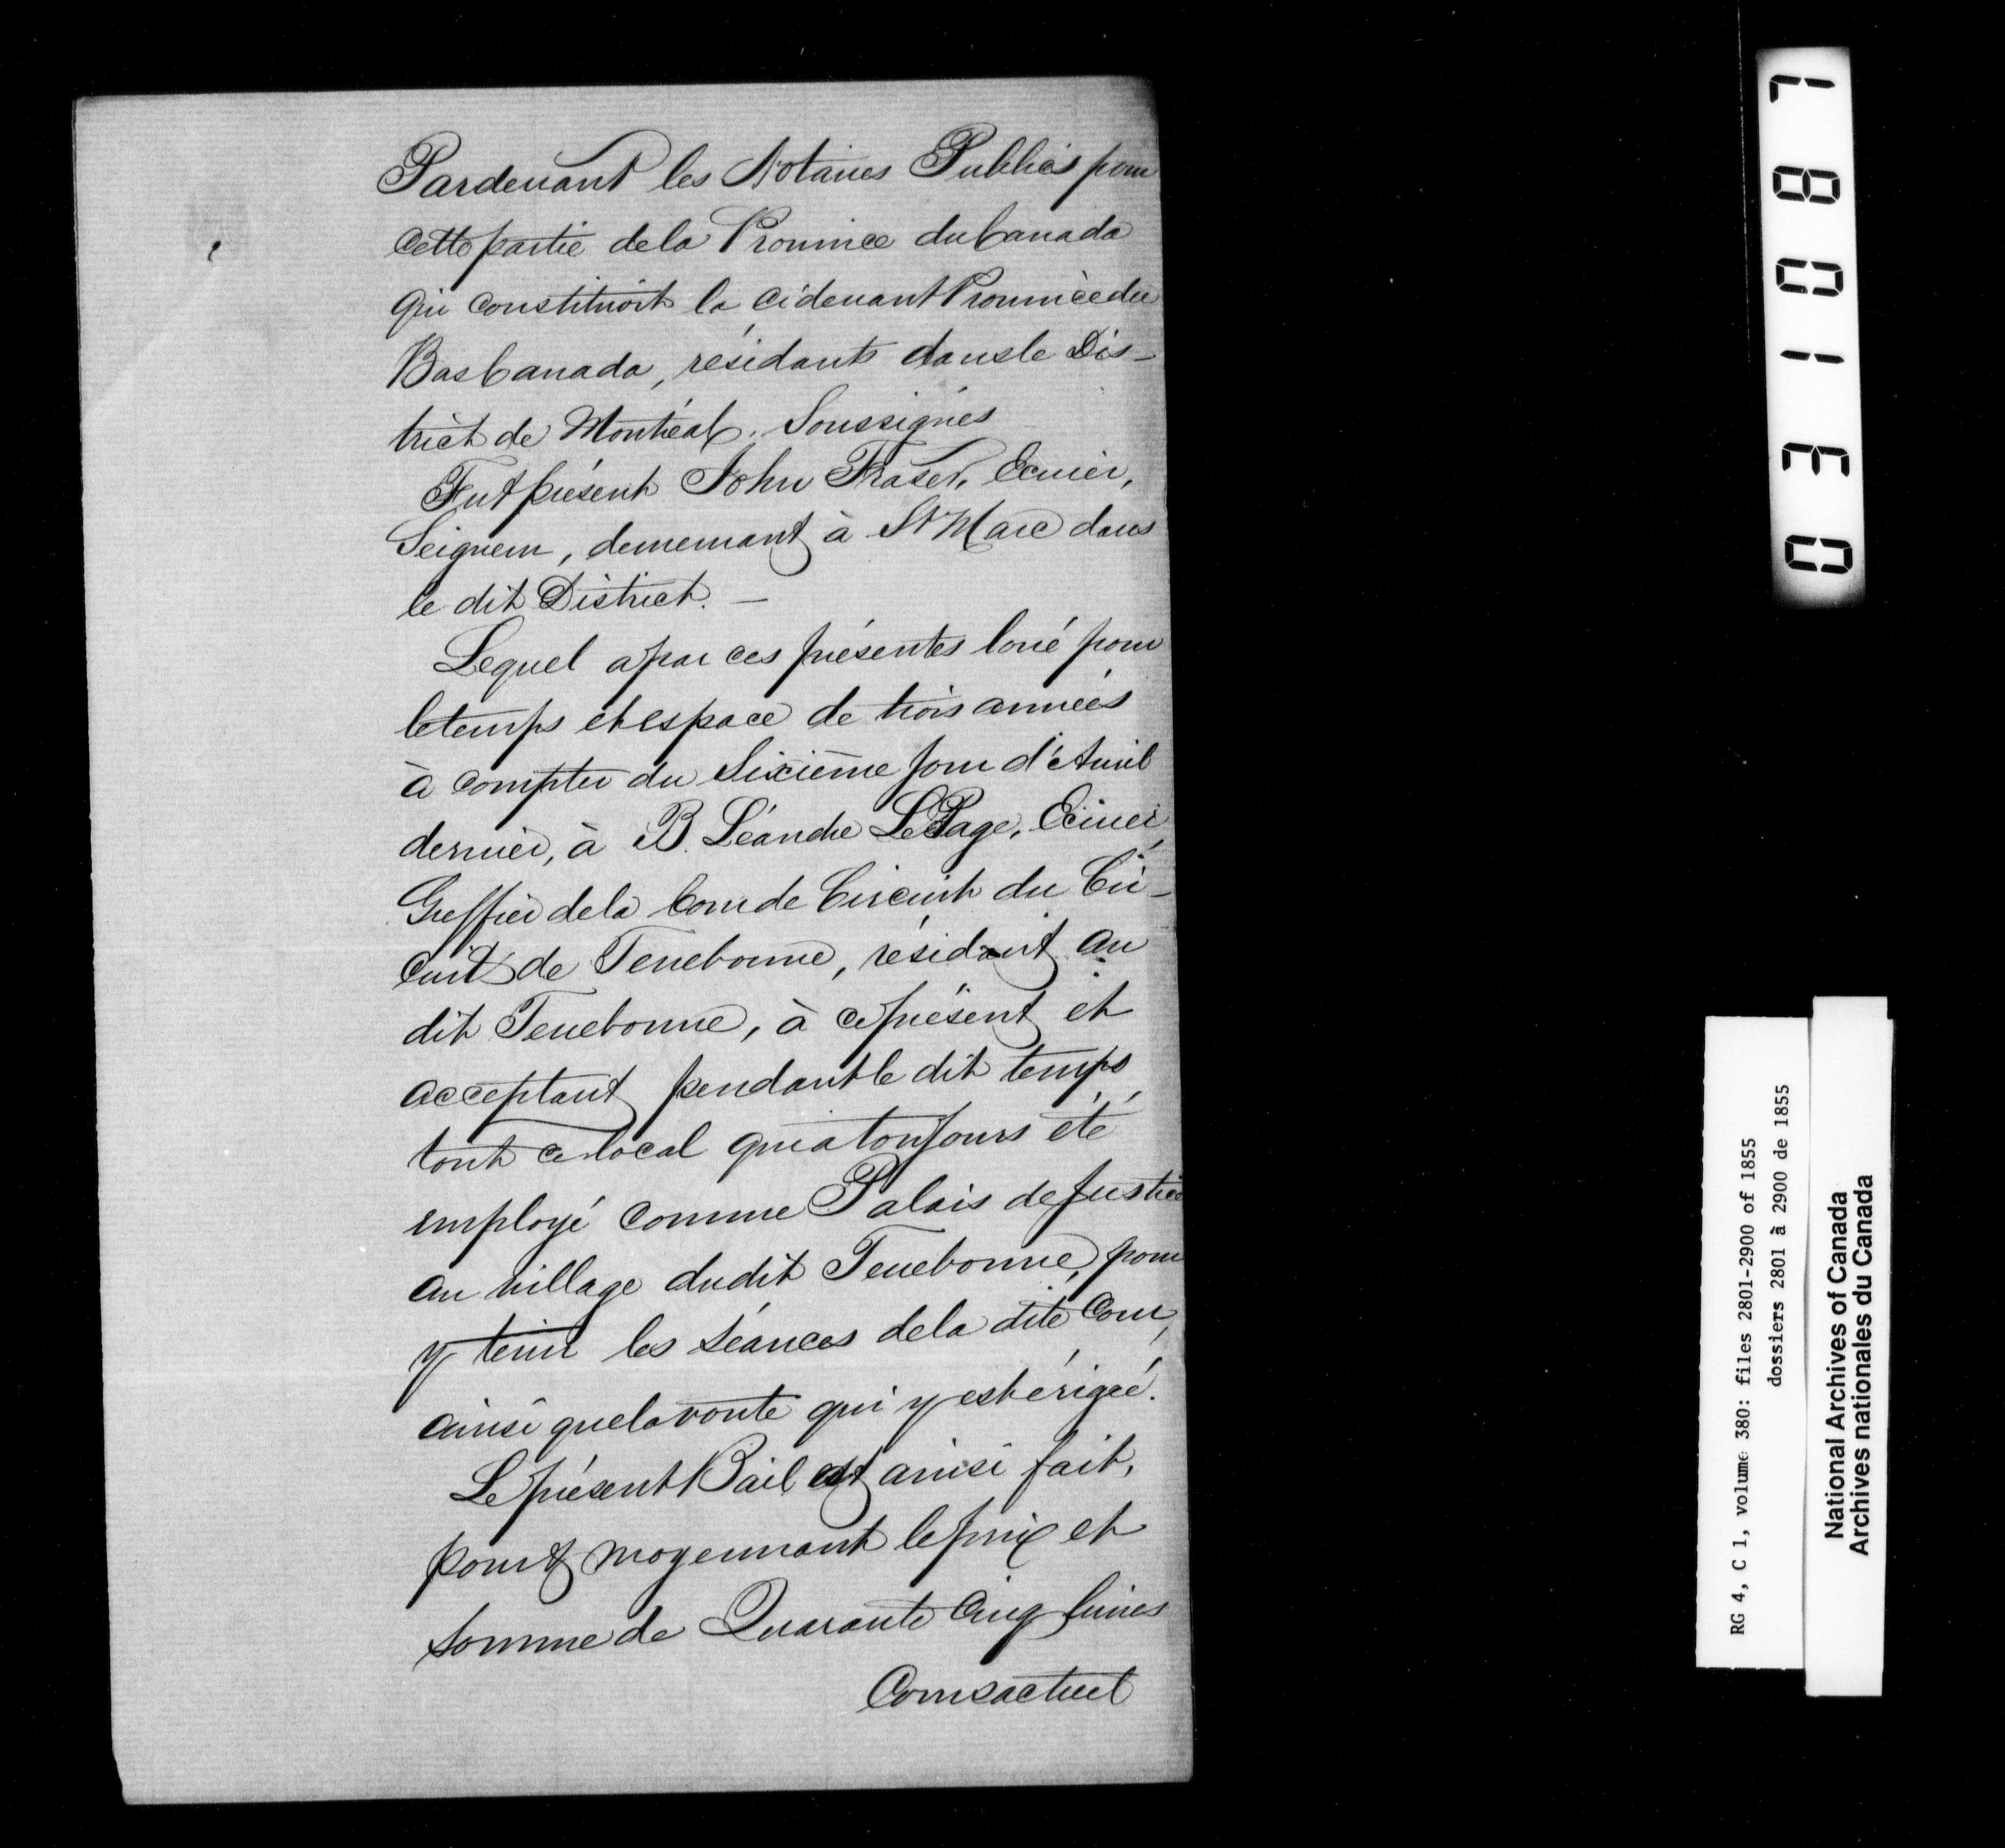 Pardevant les Notaires Publics pour
cette partie de la Province du Canada
qui constituoit la cidevant Province du
Bas Canada, résidants dans le Dis-
trict de Montréal, Soussignés
Fut présent John Fraser, Ecuier,
Seigneur, demeurant à St Marc dans
le dit District. —
Lequel a par ces présentes loué pour
le temps et espace de trois années
à compter du Sixième jour d'Avril
dernier, à B. Léandre LePage, Ecuier,
Greffier de la Cour de Circuit du Cir-
cuit de Terrebonne, résidant au
dit Terrebonne, à ce présent et
acceptant pendant le dit temps,
tout ce local qui a toujours été
employé comme Palais de Justice
au village du dit Terrebonne, pour
y tenir les séances de la dite Cour,
ainsi que la voute qui y est érigée.
Le présent Bail est ainsi fait,
pour & moyennant le prix et
somme de Quarante Cinq Livres
Cours actuel
031087
RG 4, C 1, volume 380: files 2801-2900 of 1855
dossiers 2801 à 2900 de 1855
National Archives of Canada
Archives nationales du Canada